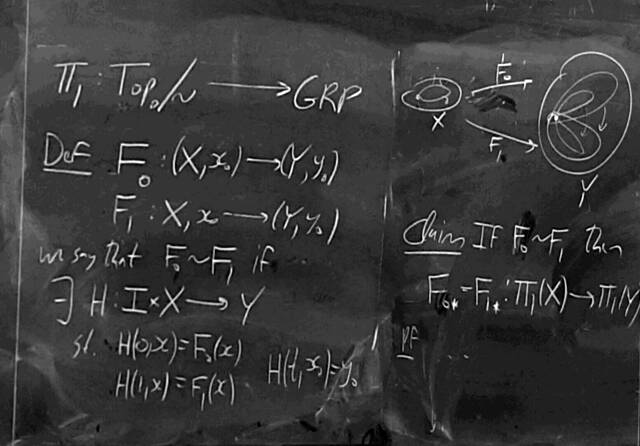 π₁ : Top₀/~ ⟶ GRP
Def F₀ : (X, x₀) ⟶ (Y, y₀)
F₁ : X, x₀ ⟶ (Y, y₀)
we say that F₀ ~ F₁ if ...
∃ H : I × X ⟶ Y
st. H(0,x) = F₀(x)
H(1,x) = F₁(x) H(t,x₀) = y₀
F₀
X
F₁
Y
Claim IF F₀ ~ F₁ then
F₀* = F₁* : π₁(X) → π₁(Y)
PF ...